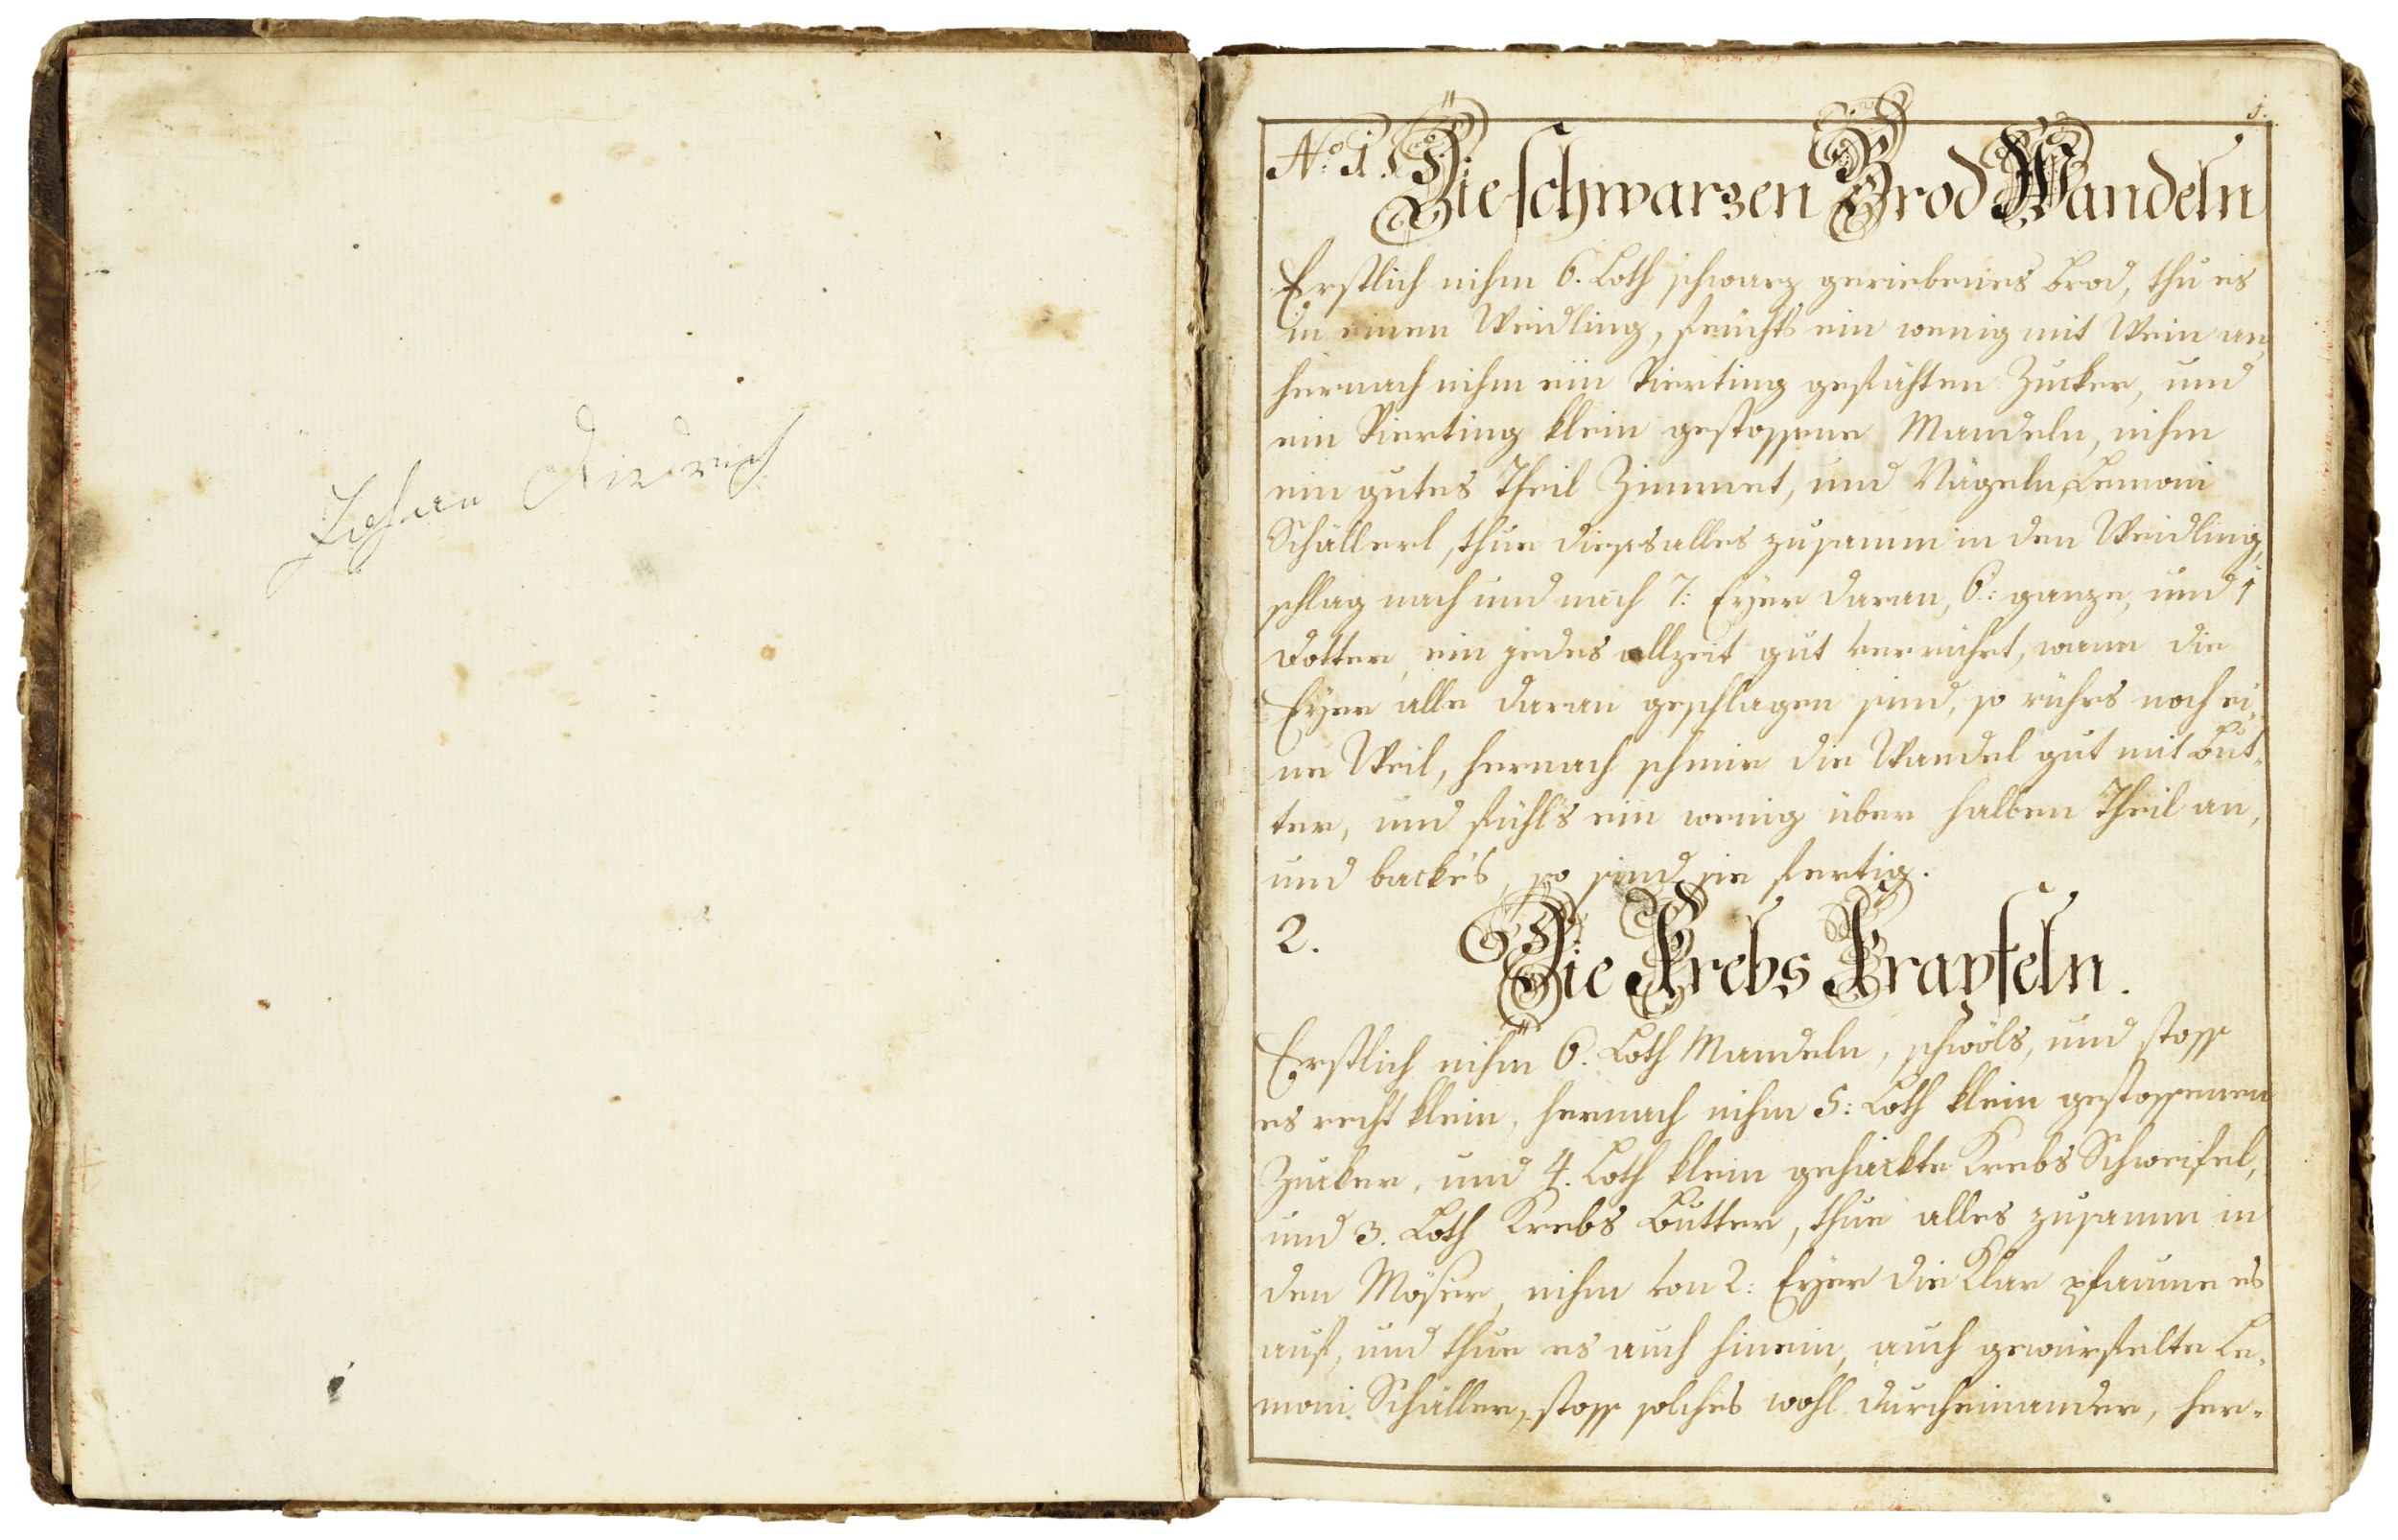 Johann Diedrich
1.
No. 1. Die schwarzen Brod Wandeln
Erstlich nihm 6. Loth schwarz geriebenes Brod, thu es
in einen Weidling, feuchts ein wenig mit Wein an,
hernach nihm ein Vierting gefähten Zucker, und
ein Vierting klein gestossene Mandeln, nihm
ein gutes Theil Zimmet, und Nägeln, Lemoni
Schällerl, thue dieses alles zusamm in den Weidling,
schlag nach und nach 7: Eyer daran, 6: ganze, und 1
dotter, ein jedes allzeit gut verrührt, wann die
Eyer alle daran geschlagen sind, so rührs noch ei„
ne Weil, hernach schmir die Wandel gut mit But„
ter, und fühl's ein wenig über halben Theil an,
und backe's, so sind sie fertig.
2. Die Krebs Krapfeln.
Erstlich nihm 6. Loth Mandeln, schwöls, und stoss
es recht klein, hernach nihm 5: Loth klein gestossenen
Zucker, und 4. Loth klein gehackte Krebs Schweifel,
und 3. Loth Krebs Butter, thue alles zusamm in
den Mößer, nihm von 2: Eyer die Klar pfaume es
auf, und thue es auch hinein, auch gewürfelte Le„
moni Schäller, stoss solches wohl durcheinander, her„